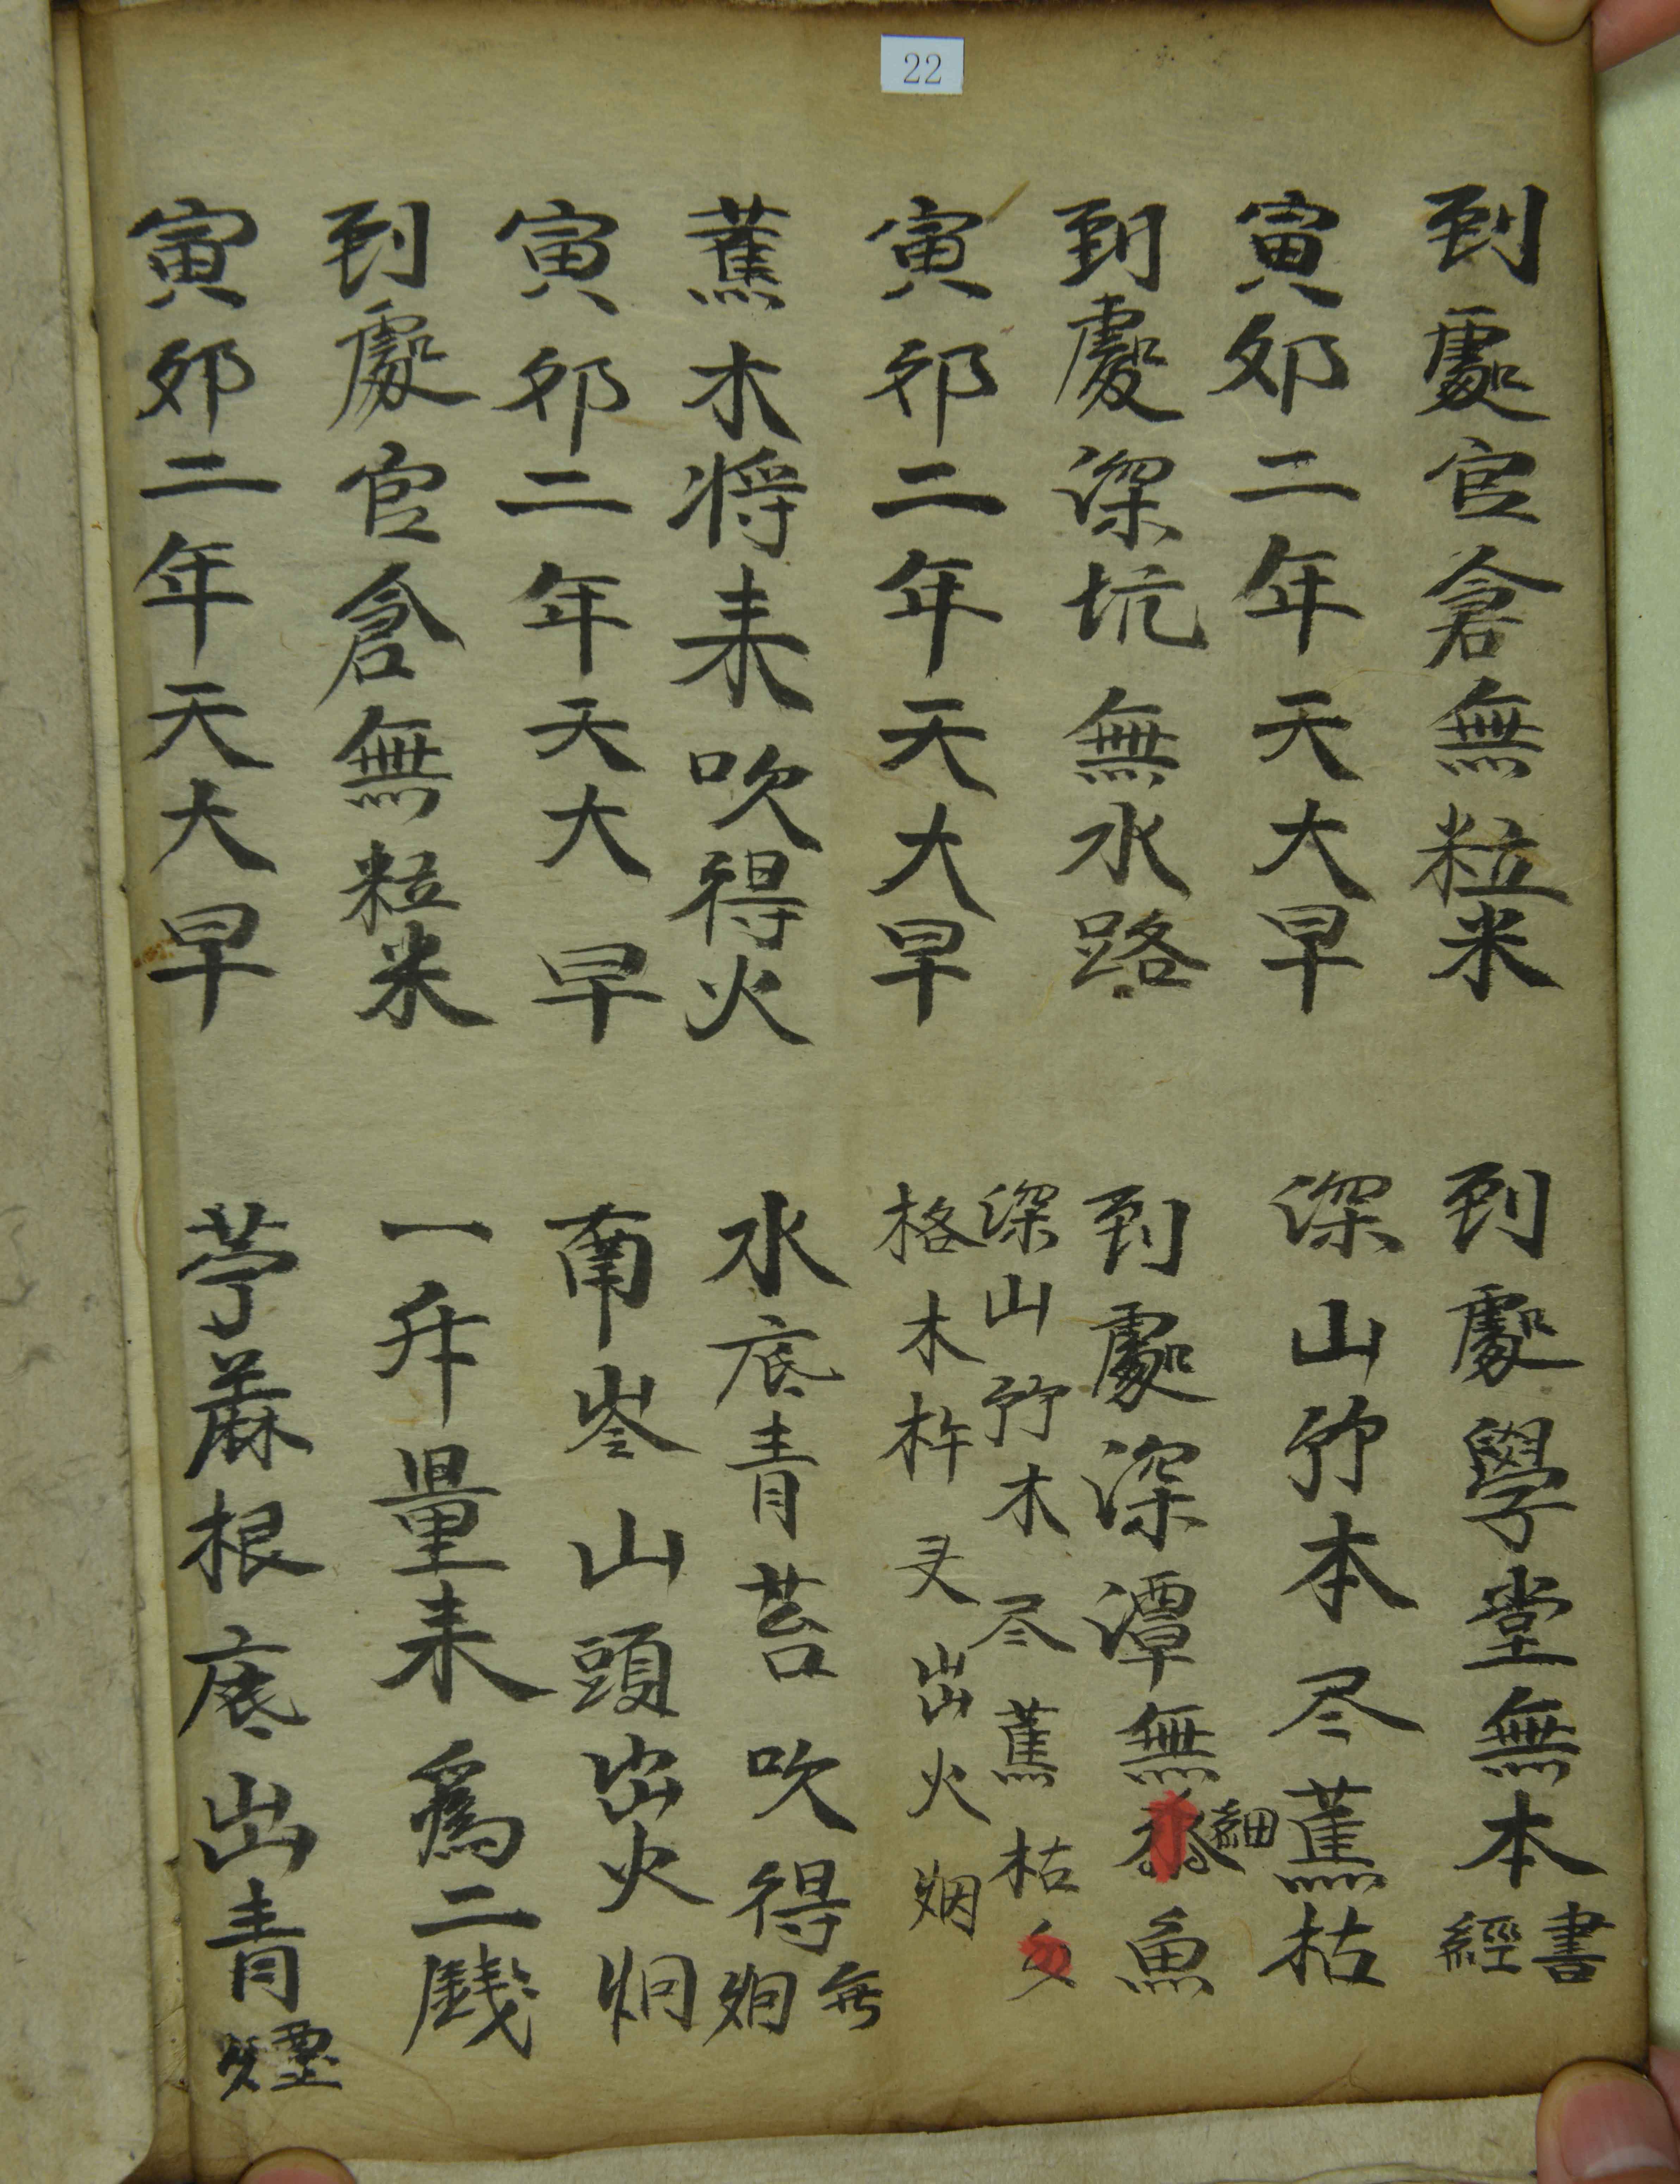 22
到處官倉無粒米 到處學堂無本書經
寅卯二年天大早 深山竹本尽蕉枯
到處深坑無水路 到處深潭無細魚
寅卯二年天大早 深山竹木尽蕉枯
格木杵 出火烟
蕉木将耒吹得火 水底青苔吹得無炯
寅卯二年天大早 南岺山頭出火炯
到處官倉無粒米 一升量耒爲二錢
寅卯二年天大早 苧蔴根底出青煙